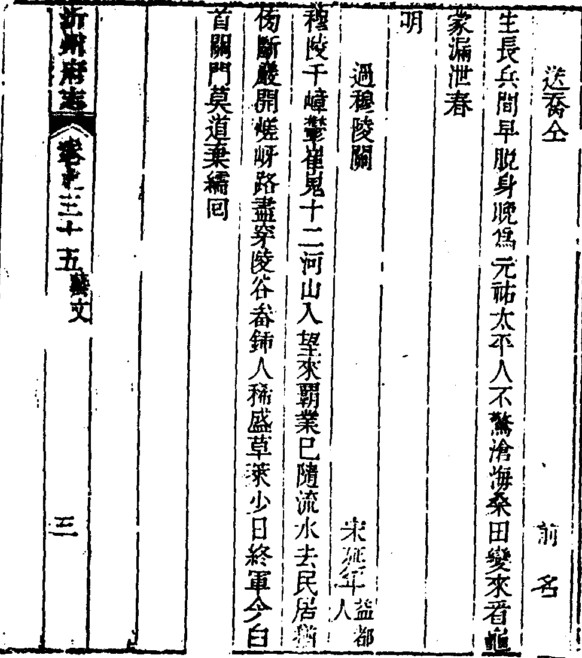 送喬仝 前名
生長兵間早脫身晚爲元祐太平人不驚滄海桑田變來看龜
家漏泄春
明
過穆陵關 宋延年益都人
穆陵千嶂鬱崔嵬十二河山入望來覇業已隨流水去民居猶
傍斷巖開嵯岈路盡穿陵谷畚鍤人稀盛草萊少日終軍今白
首關門莫道棄繻回
沂州府志 卷之三十五 藝文 三